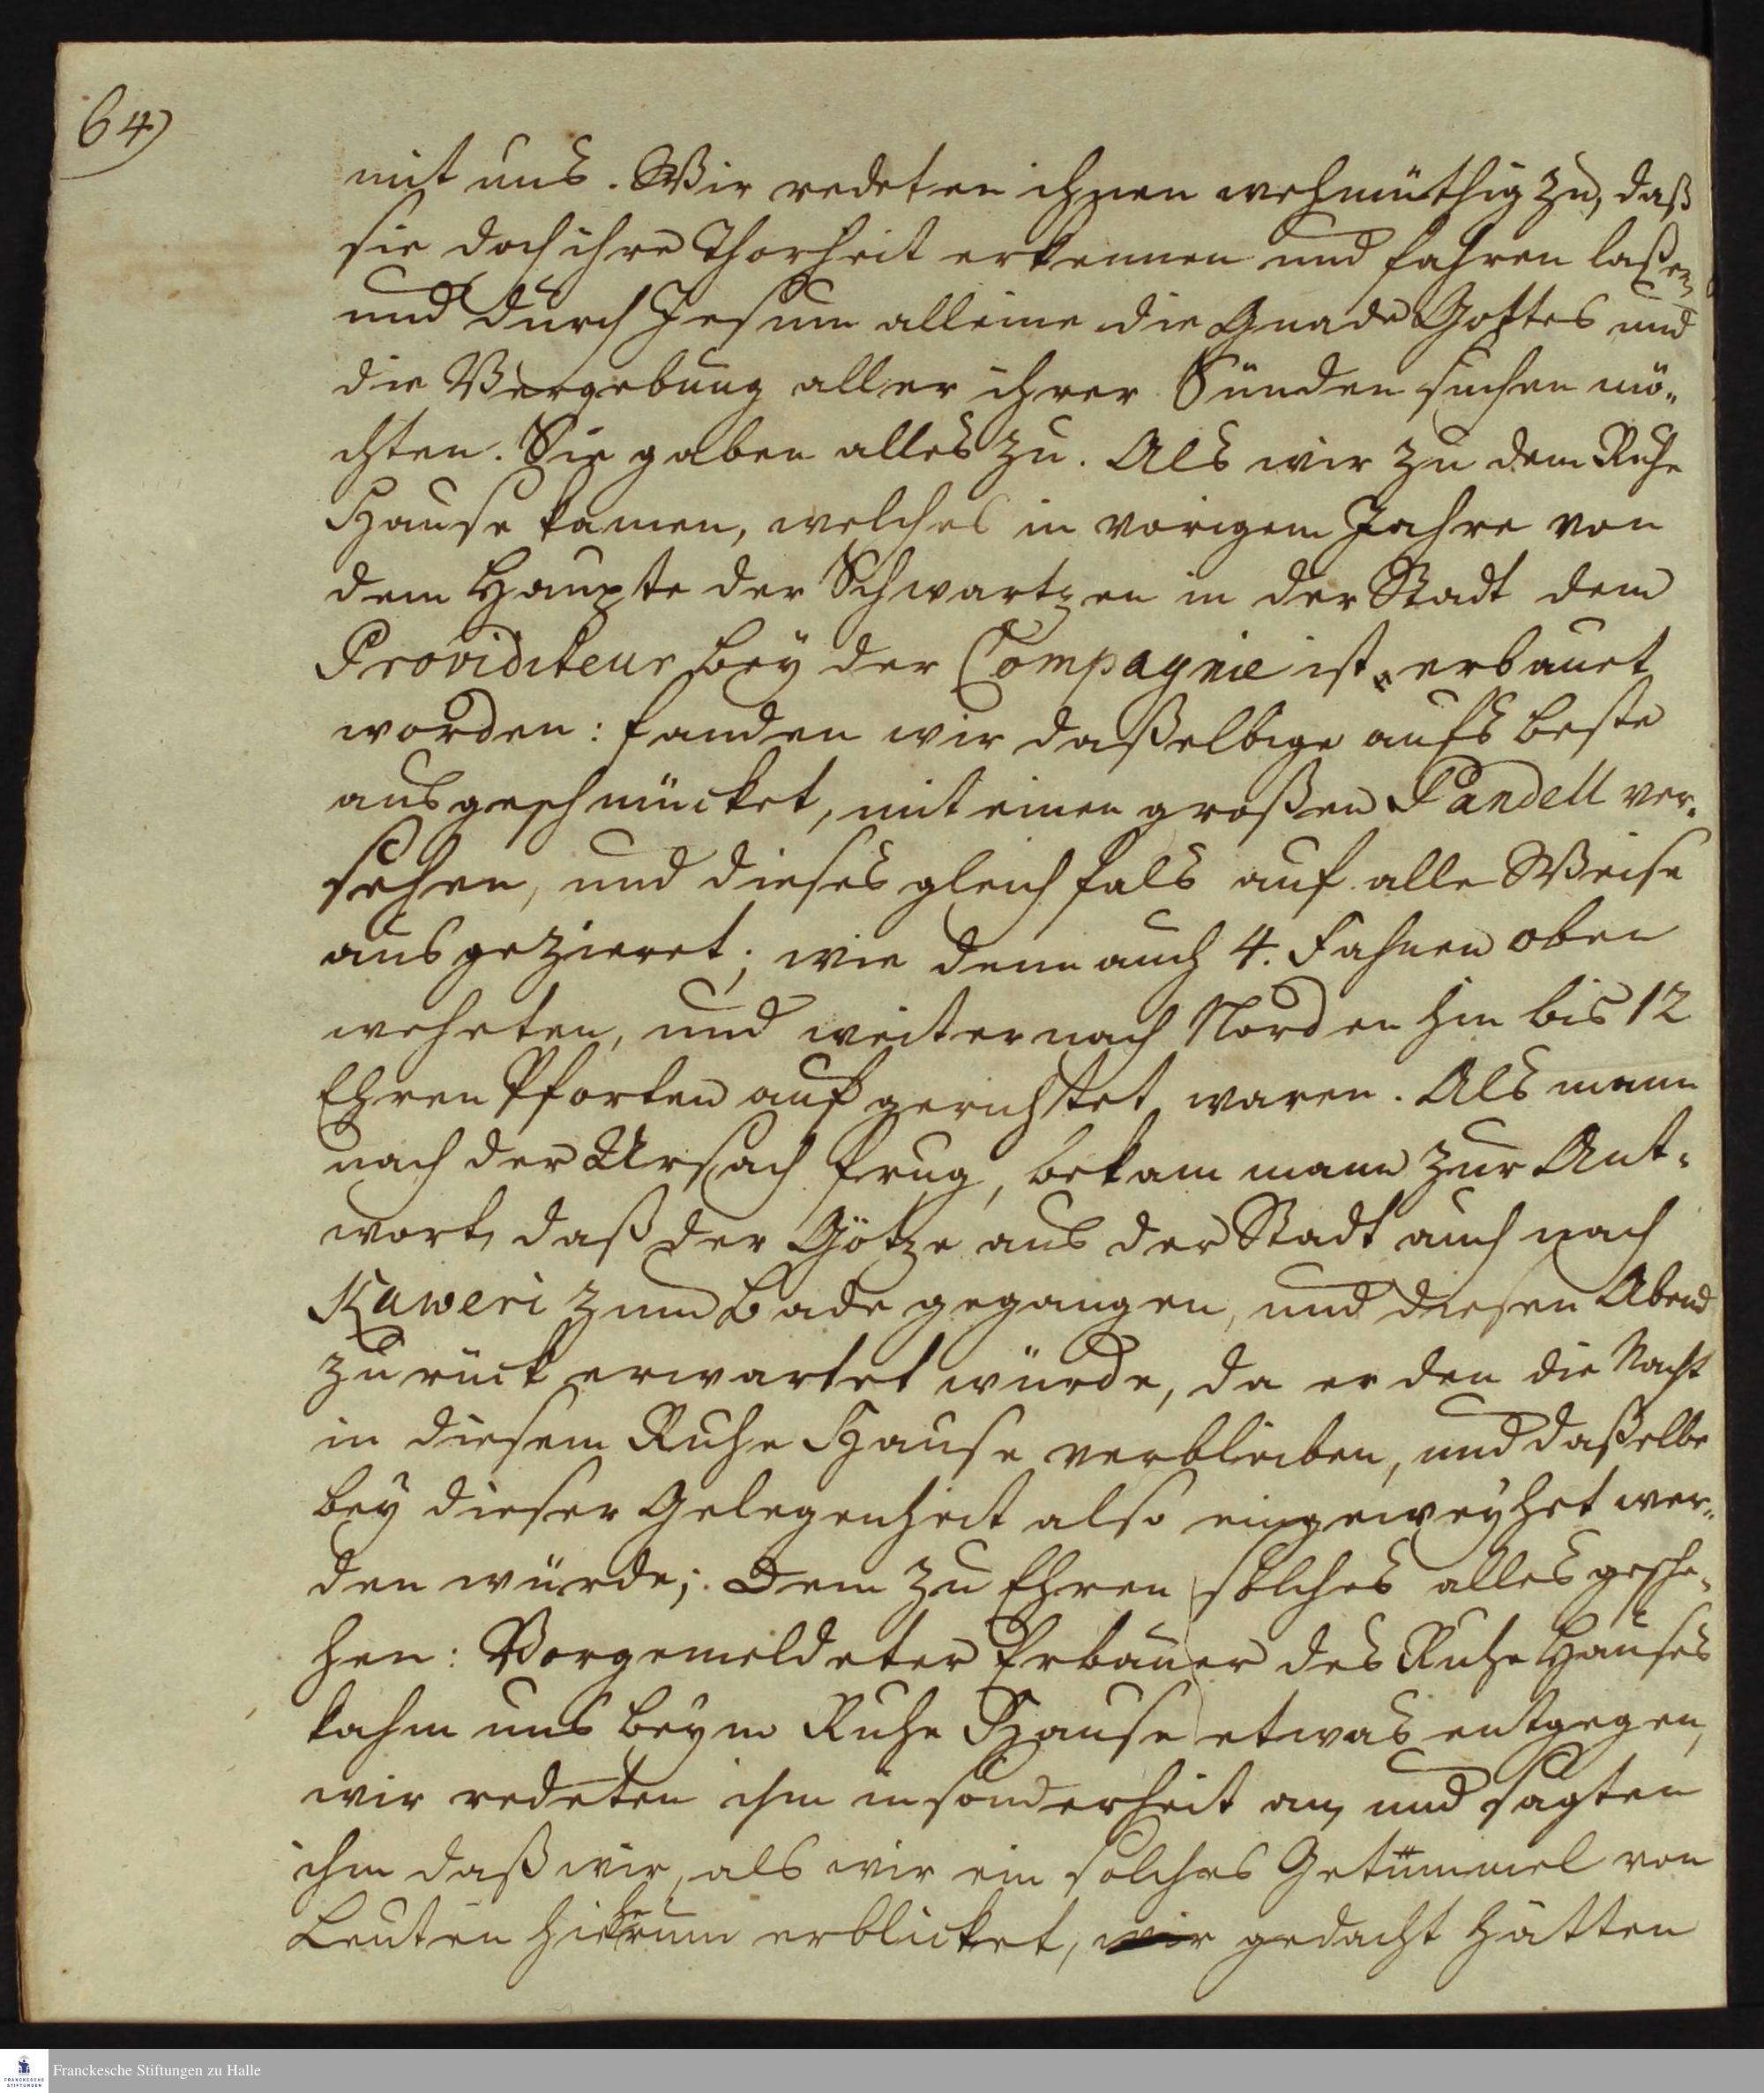 64)
mit uns. Wir redeten ihnen wehmüthig zu, daß
sie doch ihre Thorheit erkennen und fahren laßen,
und durch Jesum alleine die Gnade Gottes und
die Vergebung aller ihrer Sünden suchen mö-
chten. Sie gaben alles zu. Als wir zu dem Ruhe
Hause kamen, welches in vorigem Jahre von
dem Haupte der Schwartzen in der Stadt dem
Providiteur bey der Compagnie ist erbauet
worden: fanden wir daßelbige aufs beste
ausgeschmücket, mit einen großen Pandell ver-
sehen, und dieses gleich fals auf alle Weise
ausgezieret; wie denn auch 4. Fahnen oben
weheten, und weiter nach Norden hin bis 12
Ehren Pforten aufgerichtet waren. Als mann
nach der Ursach frug, bekam mann zur Ant-
wort, daß der Götze aus der Stadt auch nach
Kaweri zum Bade gegangen, und diesen Abend
zurück erwartet würde, da er den die Nacht
in diesem Ruhe Hause verbleiben, und daßelbe
bey dieser Gelegenheit also eingeweyhet wer-
den würde; Dem zu Ehren solches alles gesche-
hen: Vorgemeldeter Erbauer des Ruhe Hauses
kahm uns beym Ruhe Hause etwas entgegen,
wir redeten ihm insonderheit an, und sagten
ihm daß wir, als wir ein solches Getümmel von
Leuten hieherum erblicket, wir gedacht hätten
Franckesche Stiftungen zu Halle
FRANCKESCHE
STIFTUNGEN